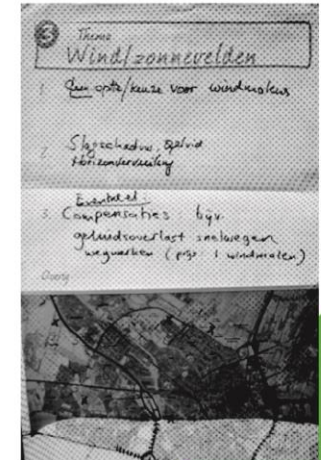 3 Thema
Wind/zonnevelden
1. Geen optie/keuze voor windmolens
2. Slagschaduw, Geluid
Horizonvervuiling
Eventueel:
3. Compensaties bijv.
geluidsoverlast snelwegen
wegwerken (prijs: 1 windmolen)
Overig